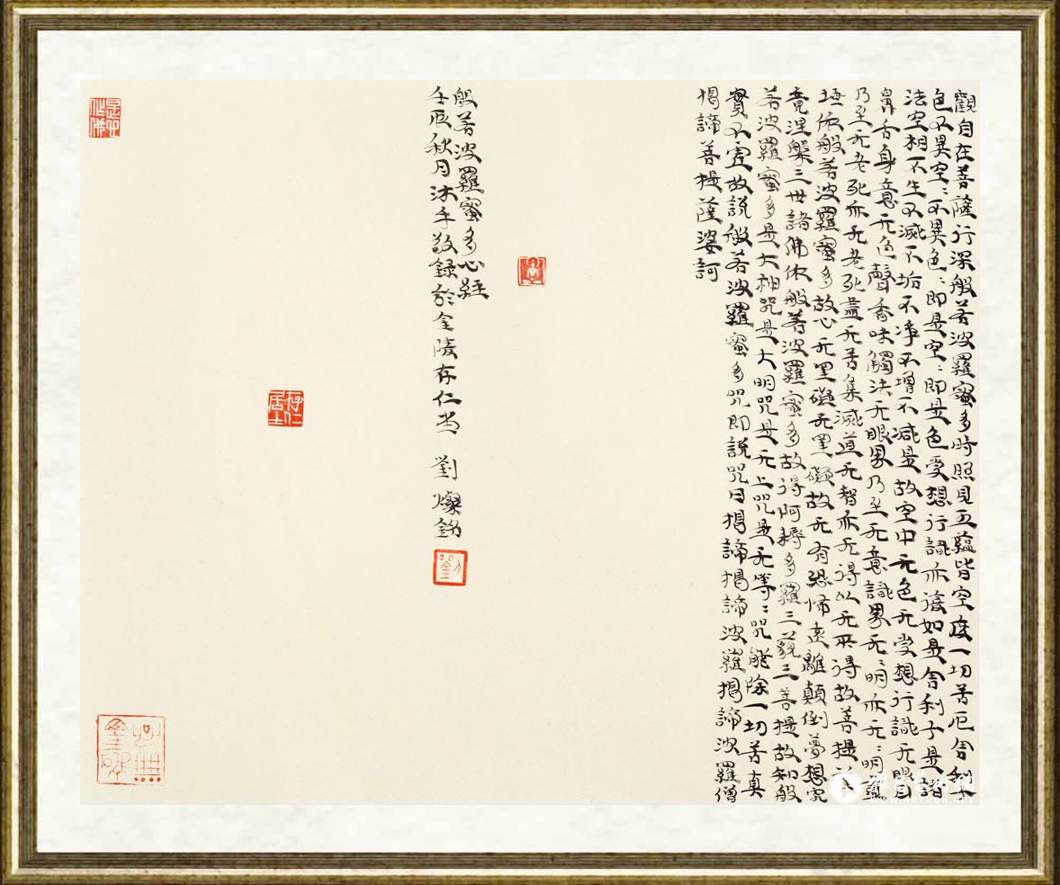 觀自在菩薩行深般若波羅蜜多時照見五蘊皆空度一切苦厄舍利子
色不異空〻不異色〻即是空〻即是色受想行識亦復如是舍利子是諸
法空相不生不滅不垢不淨不增不減是故空中无色无受想行識无眼耳
鼻舌身意无色聲香味觸法无眼界乃至无意識界无〻明亦无〻明盡
乃至无老死亦无老死盡无苦集滅道无智亦无得以无所得故菩提
埵依般若波羅蜜多故心无罣礙无罣礙故无有恐怖遠離顛倒夢想究
竟涅槃三世諸佛依般若波羅蜜多故得阿耨多羅三藐三菩提故知般
若波羅蜜多是大神咒是大明咒是无上咒是无等〻咒能除一切苦真
實不虛故說般若波羅蜜多咒即說咒曰揭諦揭諦波羅揭諦波羅僧
揭諦菩提薩婆訶
般若波羅蜜多心經
壬辰秋月沐手敬錄於金陵存仁堂 劉燦銘
存仁居士
劉
是心作佛